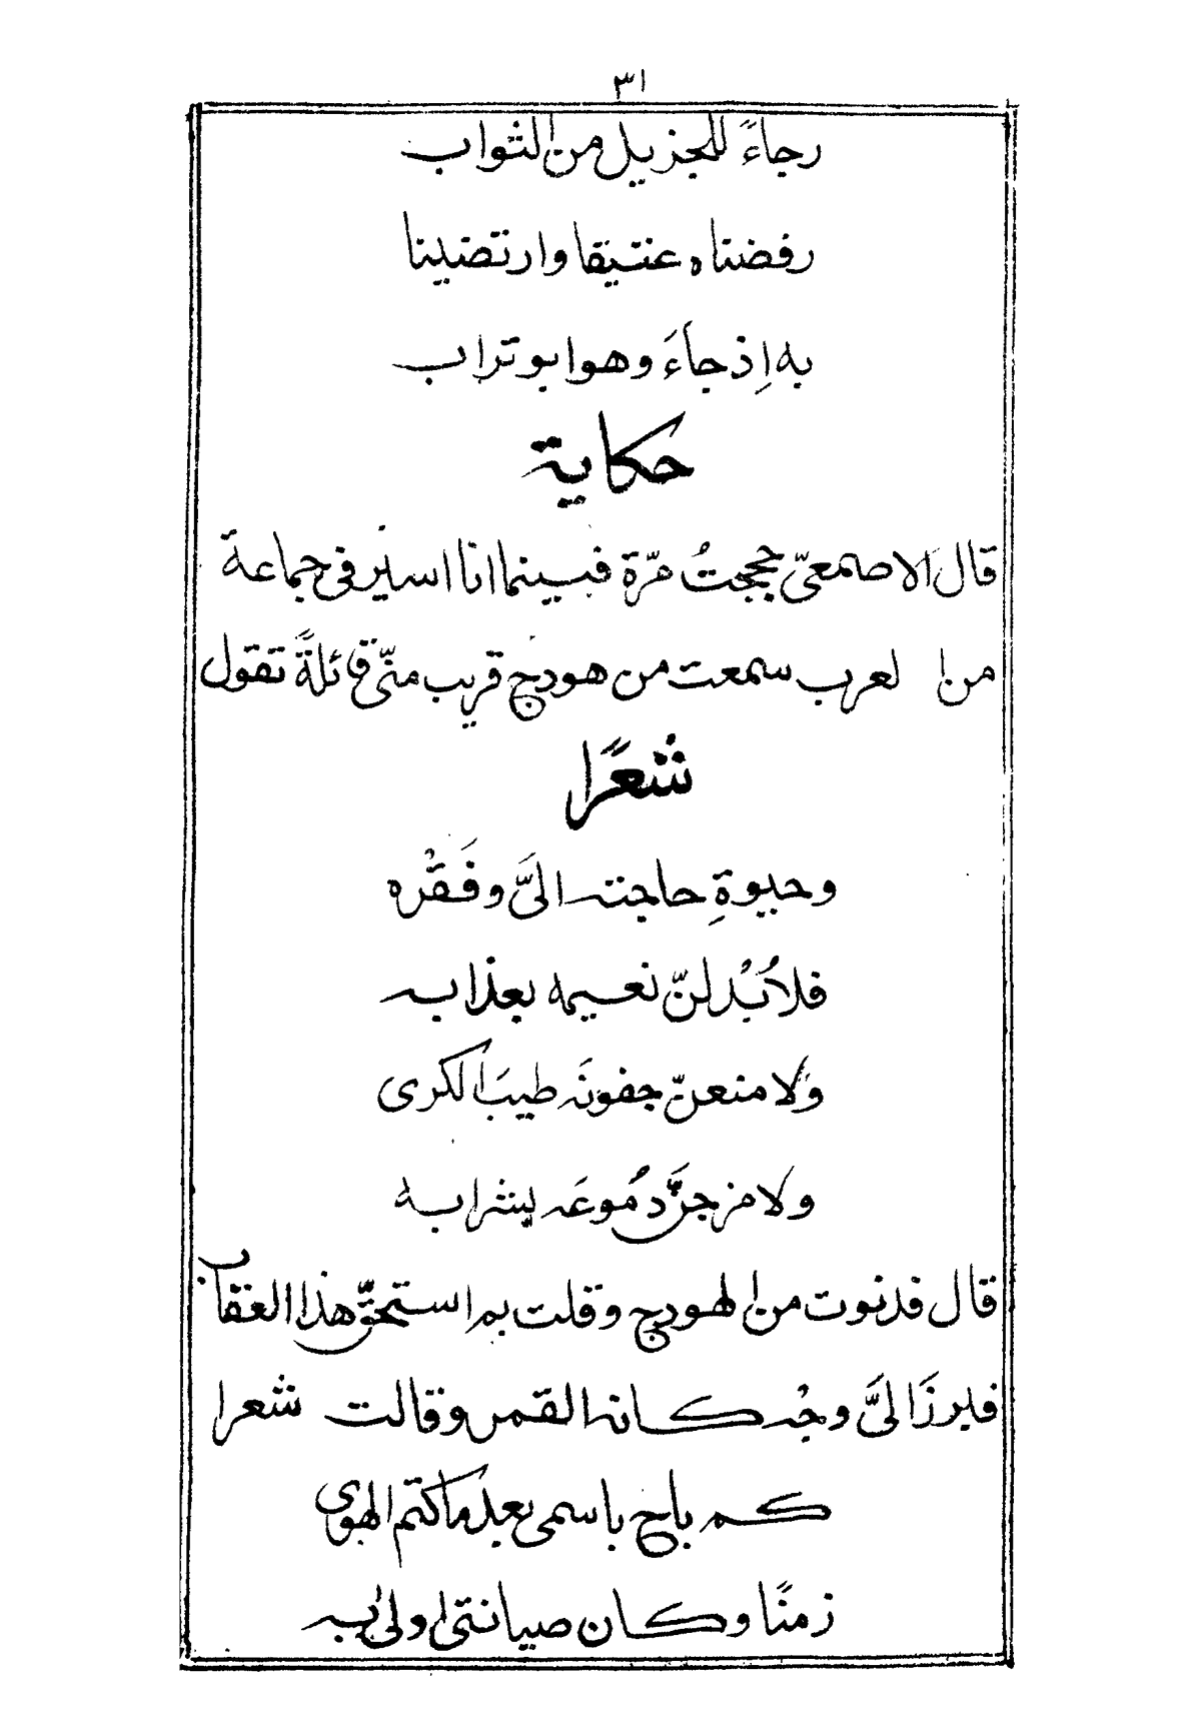 ٣١
رجاءً للجزيل من الثواب
رفضناه عتيقا وارتضينا
به إِذ جاءَ وهو ابو تراب
حكاية
قال الاصمعىّ حججتُ مرّة فبينما انا اسير فى جماعة
من العرب سمعت من هودج قريب منّى قائلةً تقول
شعرًا
وحيوةِ حاجته الىَّ وفَقْره
فلاُبْدلنّ نعيمه بعذابه
وَلامنعنّ جفونَه طيبَ الكرى
ولامزجنَّ دُموعَه بشرابه
قال فدنوت من الهودج وقلت بم استحقّ هذا العقاب
فبرزَ الىَّ وجْه كانه القمر وقالت شعرا
كم باح باسمى بعد ما كتم الهوى
زمنًا وكان صيانتى اولى به